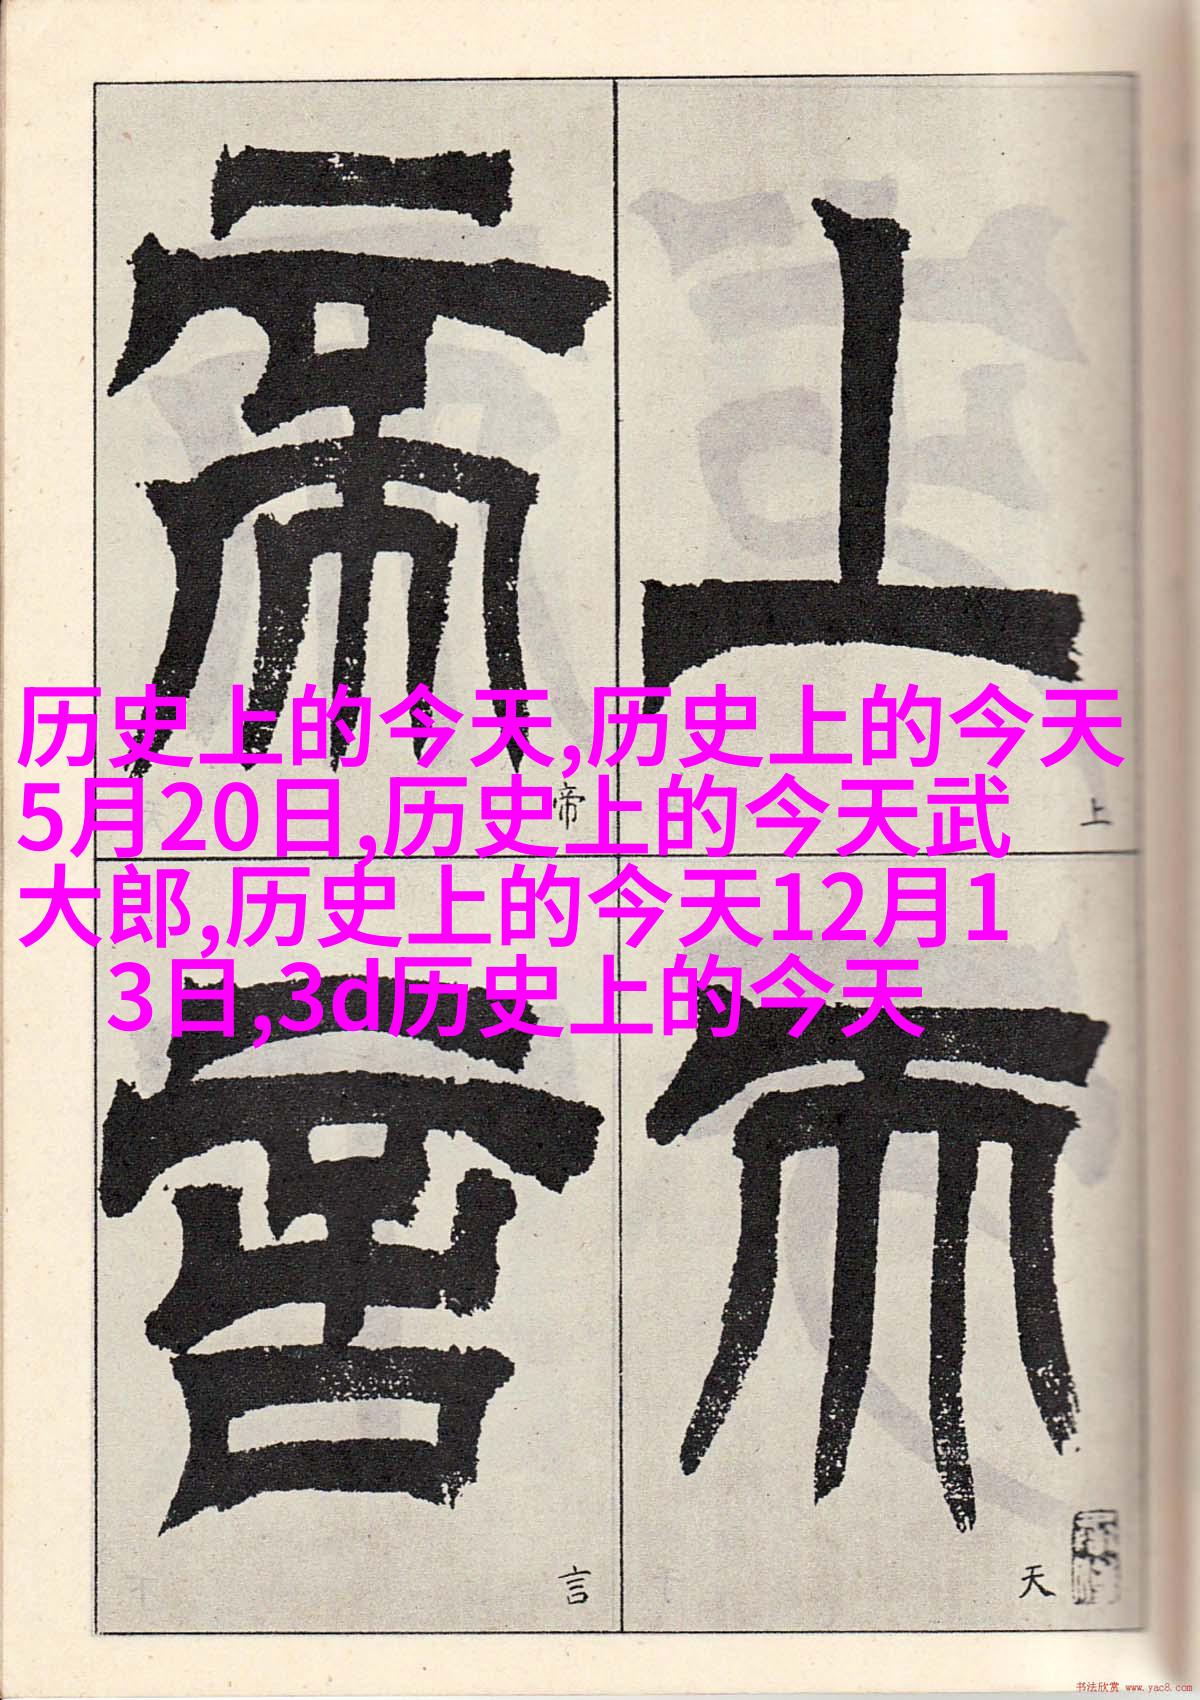 上
帝
天
言
历史上的今天,历史上的今天
5月20日,历史上的今天武
大郎,历史上的今天12月1
3日,3d历史上的今天
上
帝
天
言
书法欣赏 www.yac8.com